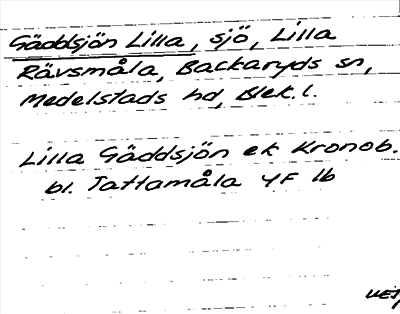 Gäddsjön Lilla, sjö, Lilla
Rävsmåla, Backaryds sn,
Medelstads hd, Blek. l.
Lilla Gäddsjön ek Kronob.
bl. Tattamåla YF 1b